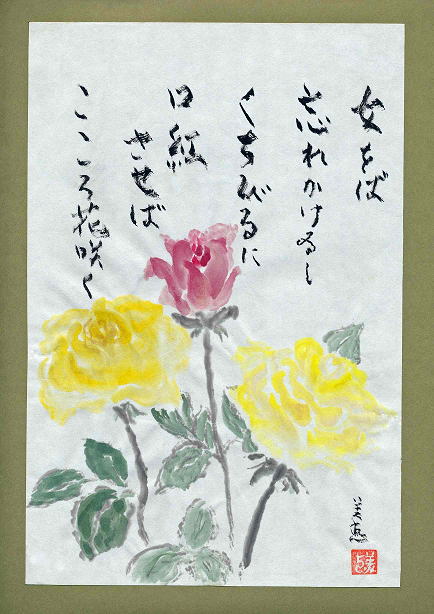 女をば
忘れかけゐし
くちびるに
口紅
させば
こころ花咲く
美恵